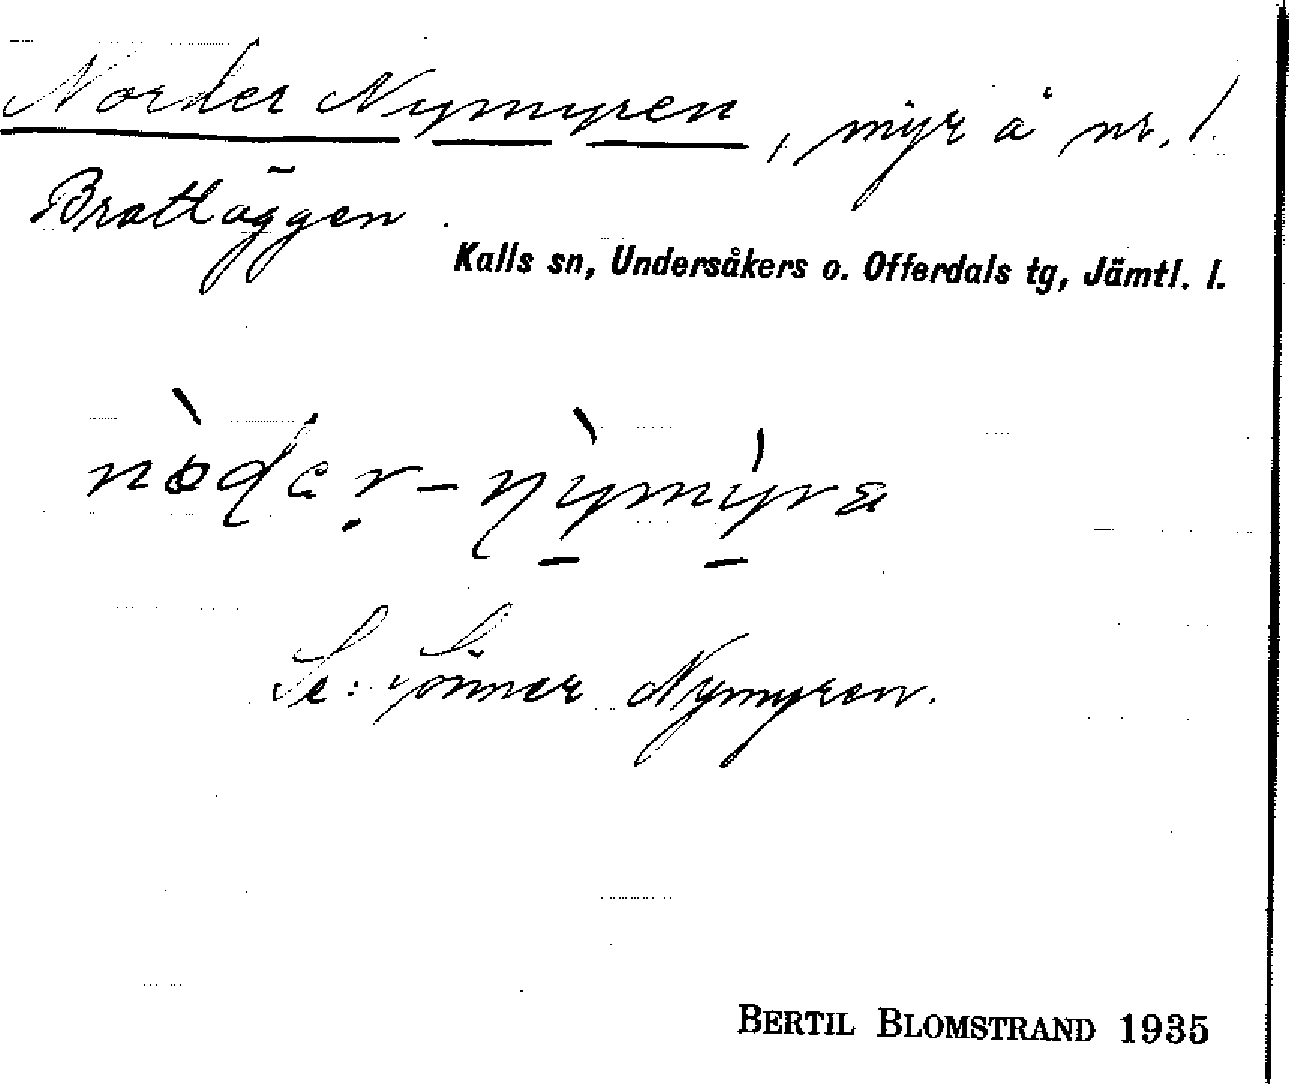 Norder Nymyren, myr å nr. 1
Brattäggen.
Kalls sn, Undersåkers o. Offerdals tg, Jämtl. l.
Se: Sönner Nymyren.
BERTIL BLOMSTRAND 1935